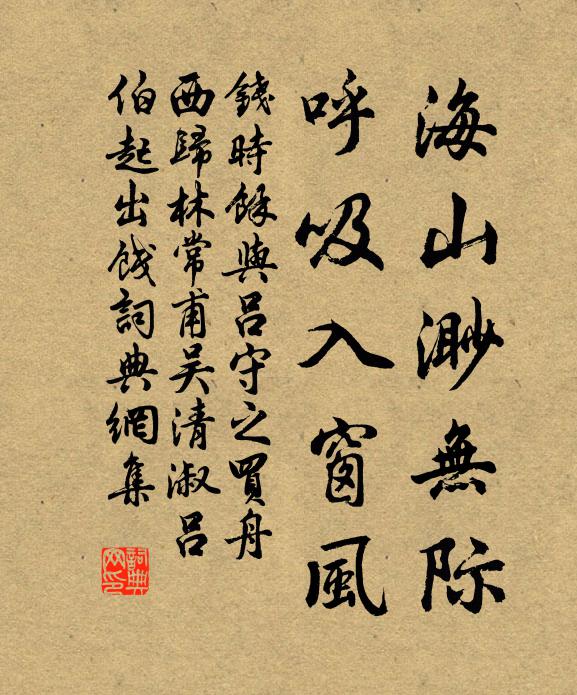 海山渺無际
呼吸入窗風
錢時餘與呂守之買舟
西歸林常甫吴清淑呂
伯起出餞詞典網集
詞典网印